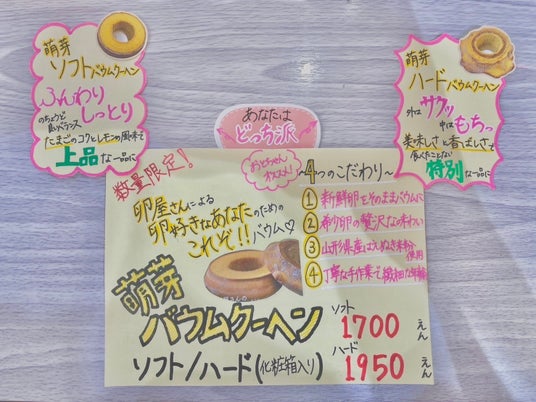 萌芽
ソフトバウムクーヘン
ふんわり
しっとり
のちょうど
良いバランス
たまごのコクとレモンの風味で
上品な一品に
あなたは
どっち派
萌芽
ハードバウムクーヘン
外はサクッ
中はもちっ
美味しさと香ばしさで
食べたことない
特別な一品に
数量限定!
おとちゃん
オススメ!
卵屋さんによる
卵好きなあなたのための
これぞ!!バウム♡
〜4つのこだわり〜
① 新鮮卵をそのままバウムに
② 希少卵の贅沢な味わい
③ 山形県産はえぬき米粉
使用
④ 丁寧な手作業で繊細な年輪
萌芽
バウムクーヘン
ソフト/ハード(化粧箱入り)
ソフト
1700えん
ハード
1950えん